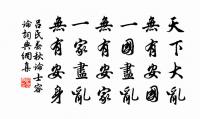 天下大亂
無有安國
一國盡亂
無有安家
一家盡亂
無有安身
呂氏春秋論士容
論詞典網集